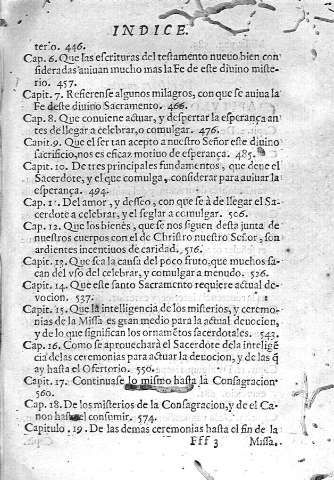 INDICE.
terio. 446.
Cap. 6. Que las escrituras del testamento nueuo bien con
sideradas auiuan mucho mas la Fe de este diuino miste-
rio. 457.
Capit. 7. Refierense algunos milagros, con que se auiua la
Fe deste diuino Sacramento. 466.
Cap. 8. Que conuiene actuar, y despertar la esperança an-
tes de llegar a celebrar, o comulgar. 476.
Capit. 9. Que el ser tan acepto a nuestro Señor este diuino
sacrificio, nos es eficaz motiuo de esperança. 485.
Capit. 10. De tres principales fundamentos, que deue el
Sacerdote, y el que comulga, considerar para auiuar la
esperança. 494.
Cap. 11. Del amor, y desseo, con que se à de llegar el Sa-
cerdote a celebrar, y el seglar a comulgar. 506.
Cap. 12. Que los bienes, que se nos siguen desta junta de
nuestros cuerpos con el de Christo nuestro Señor, son
ardientes incentiuos de caridad. 516.
Capit. 13. Que sea la causa del poco fruto, que muchos sa-
can del vso del celebrar, y comulgar a menudo. 526.
Capit. 14. Que este santo Sacramento requiere actual de-
uocion. 537.
Capit. 15. Que la inteligencia de los misterios, y ceremo-
nias de la Missa es gran medio para la actual deuocion,
y de lo que significan los ornamētos sacerdotales. 543.
Cap. 16. Como se aprouecharà el Sacerdote dela inteligē
cia de las ceremonias para actuar la deuocion, y de las q̃
ay hasta el Ofertorio. 550.
Capit. 17. Continuase lo mismo hasta la Consagracion
560.
Cap. 18. De los misterios de la Consagracion, y de el Ca-
non hasta el consumir. 574.
Capitulo. 19. De las demas ceremonias hasta el fin de la
Fff 3 Missa.